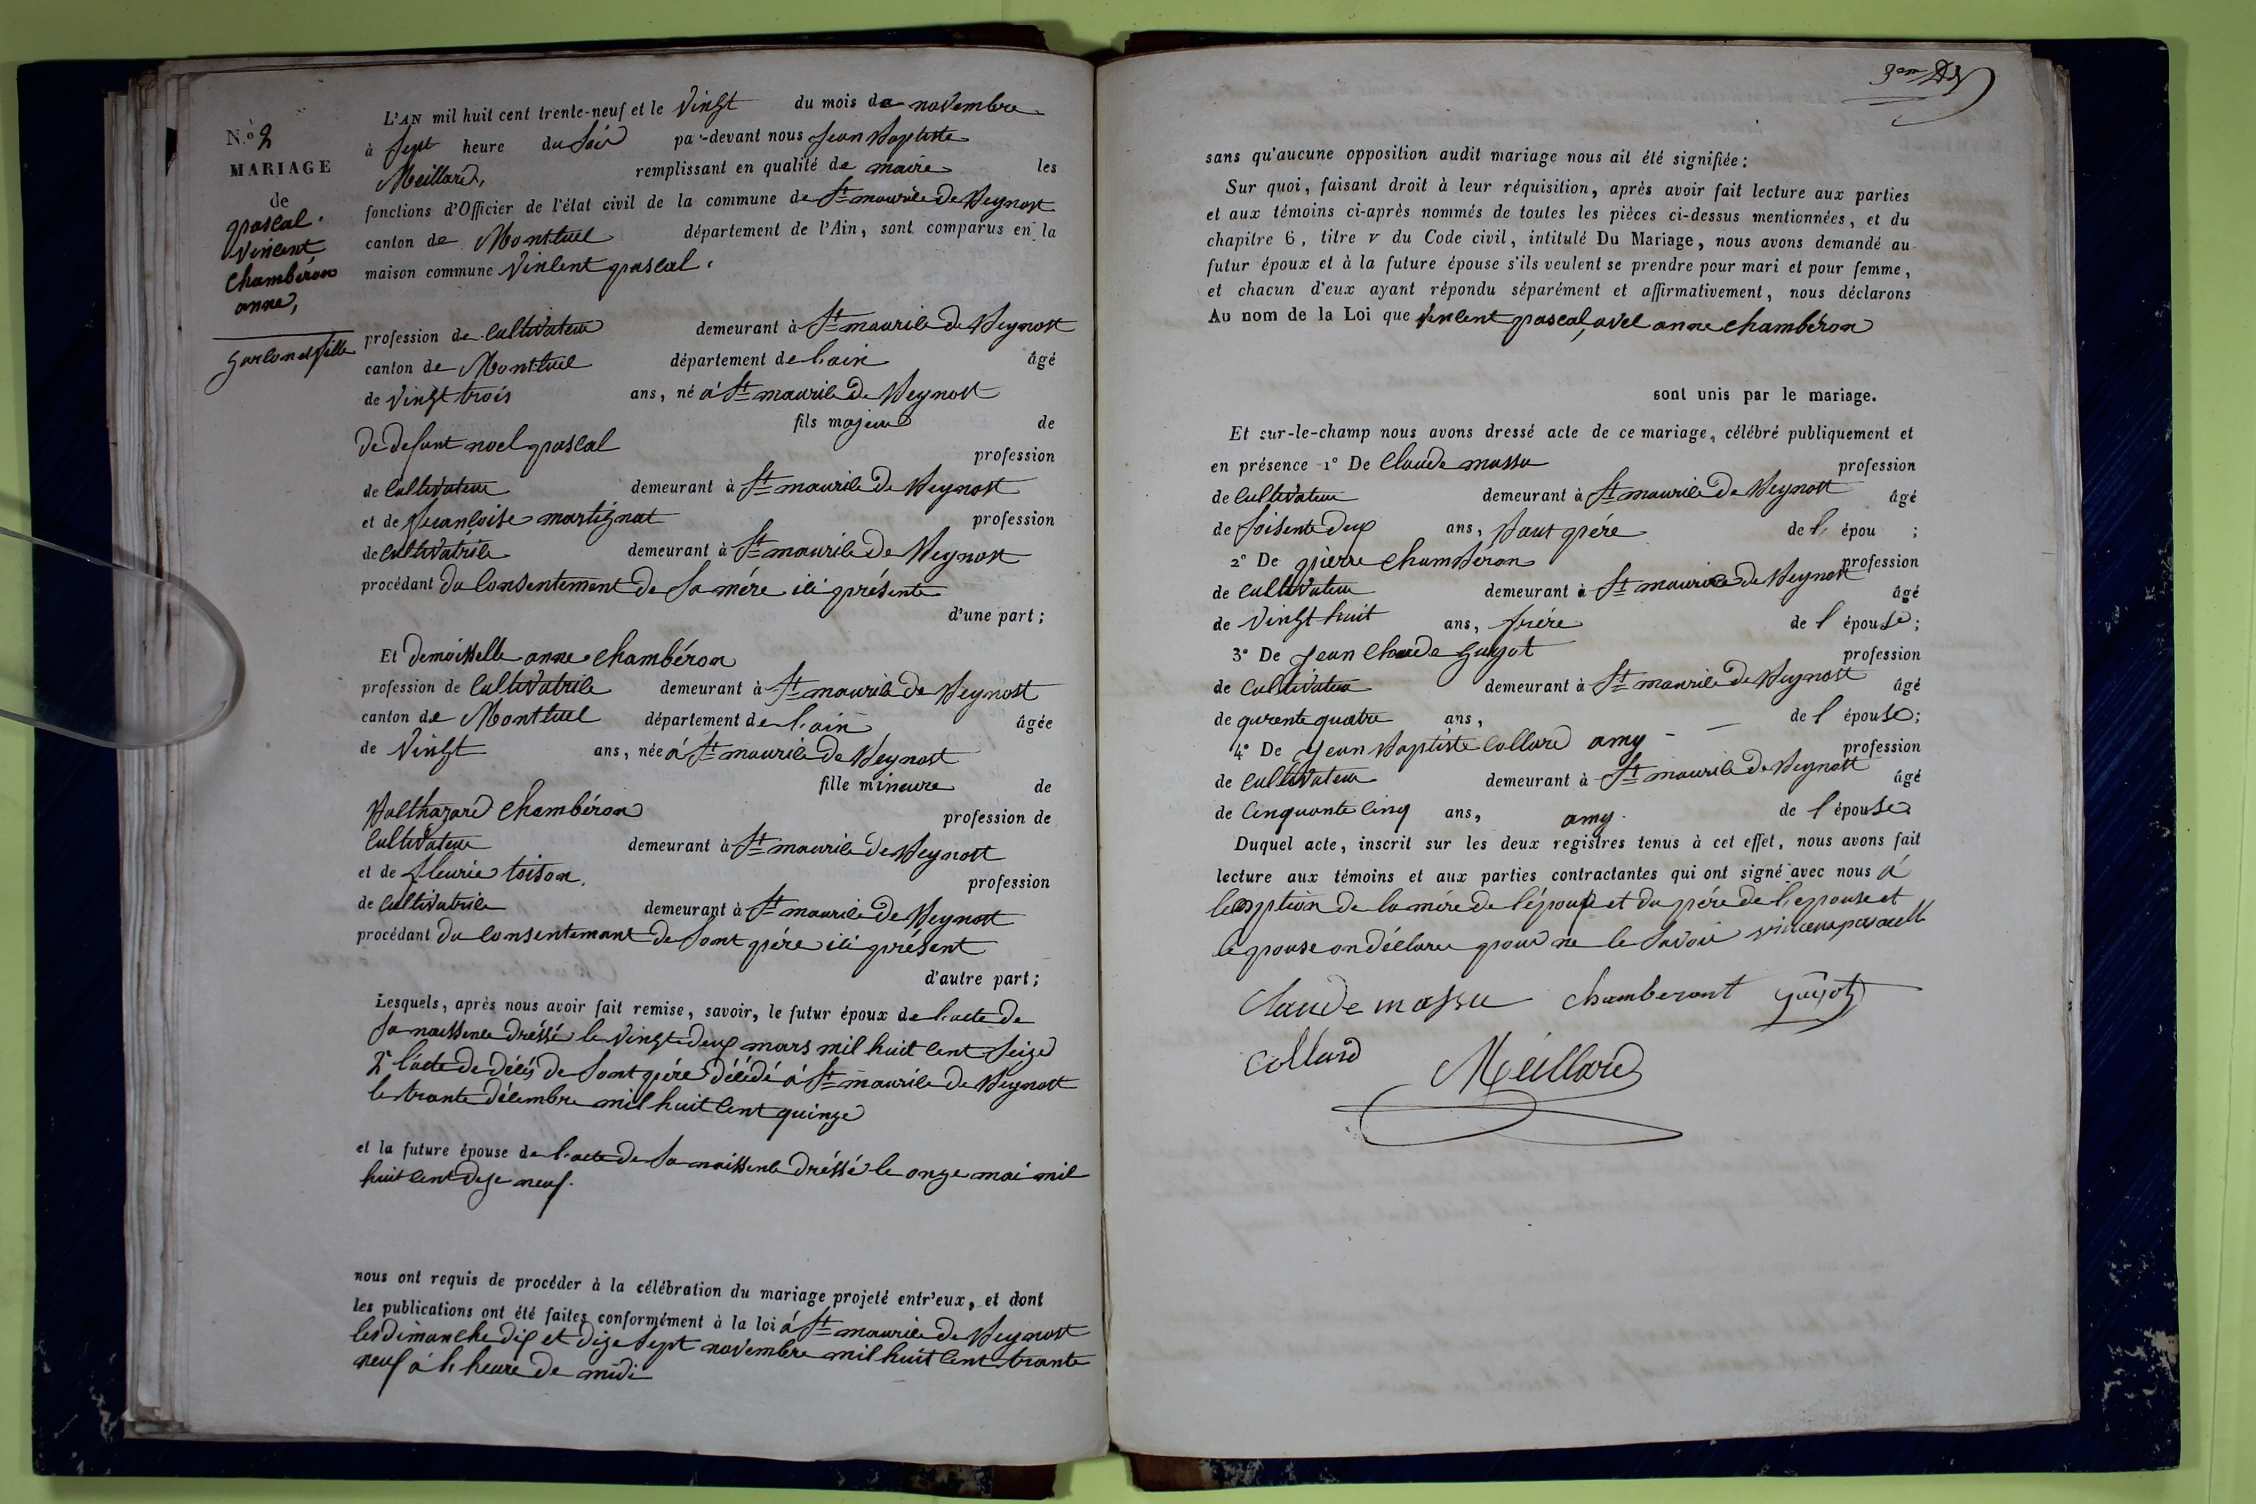 N.º 2
MARIAGE
de
pascal
Vincent
Chambéron
anne,
garconet fille
L'AN mil huit cent trente-neuf et le Vingt du mois de novembre
à Sept heure du Soir par-devant nous Jean Baptiste
Meillard, remplissant en qualité de maire les
fonctions d'Officier de l'état civil de la commune de St maurice de Beynost
canton de Montluel département de l'Ain, sont comparus en la
maison commune Vincent pascal.
profession de Cultivateur demeurant à St maurice de Beynost
canton de Montluel département de l'ain âgé
de Vingt trois ans, né à St maurice de Beynost
fils majeur de
De defunt noel pascal
profession
de Cultivateur demeurant à St maurice de Beynost
et de francoise martignat profession
de Cultivatrice demeurant à St maurice de Beynost
procédant du Consentement de Sa mére ici présente
d'une part;
Et Demoisselle anne Chambéron
profession de Cultivatrice demeurant à St maurice de Beynost
canton de Montluel département de l'ain âgée
de Vingt ans, née à St maurice de Beynost
fille mineure de
Balthazard Chambéron
profession de
Cultivateur demeurant à St maurice de Beynost
et de fleurie toison. profession
de Cultivatrice demeurant à St maurice de Beynost
procédant du Consentemant de Sont pére ici présent
d'autre part;
Lesquels, après nous avoir fait remise, savoir, le futur époux de l'acte de
Sa naissence dréssé le Vingt deux mars mil huit Cent Seize
2e l'acte de décés de Sont pére décédé à St maurice de Beynost
le trante décembre mil huit Cent quinze
et la future épouse de l'acte de Sa naissence dréssé le onze mai mil
huit Cent dize neuf.
nous ont requis de procéder à la célébration du mariage projeté entr'eux, et dont
les publications ont été faites conformément à la loi à St maurice de Beynost
les dimanche dix et dize Sept novembre mil huit Cent trante
neuf à l'heure de midi
sans qu'aucune opposition audit mariage nous ait été signifiée:
Sur quoi, faisant droit à leur réquisition, après avoir fait lecture aux parties
et aux témoins ci-après nommés de toutes les pièces ci-dessus mentionnées, et du
chapitre 6, titre v du Code civil, intitulé Du Mariage, nous avons demandé au
futur époux et à la future épouse s'ils veulent se prendre pour mari et pour femme,
et chacun d'eux ayant répondu séparément et affirmativement, nous déclarons
Au nom de la Loi que Vincent pascal, avec anne chambéron
sont unis par le mariage.
Et sur-le-champ nous avons dressé acte de ce mariage, célébré publiquement et
en présence 1° De Claude massu profession
de Cultivateur demeurant à St maurice de Beynost âgé
de Soisente deux ans, Baut pére de l' épou ;
2° De pierre Chambéron profession
de Cultivateur demeurant à St maurice de Beynost âgé
de Vingt huit ans, frére de l' épouse;
3° De Jean Claude Guyot profession
de Cultivateur demeurant à St maurice de Beynost âgé
de qurente quatre ans, de l' épouse;
4° De Jean Baptiste Collard amy profession
de Cultivateur demeurant à St maurice de Beynost âgé
de Cinquante Cinq ans, amy. de l' épouse
Duquel acte, inscrit sur les deux registres tenus à cet effet, nous avons fait
lecture aux témoins et aux parties contractantes qui ont signé avec nous à
de la mére de l'époux et du pére de l'epouse et
le pouse on déclare pour ne le Savoir
Claude massu Chamberont guyot
Collard Meillard